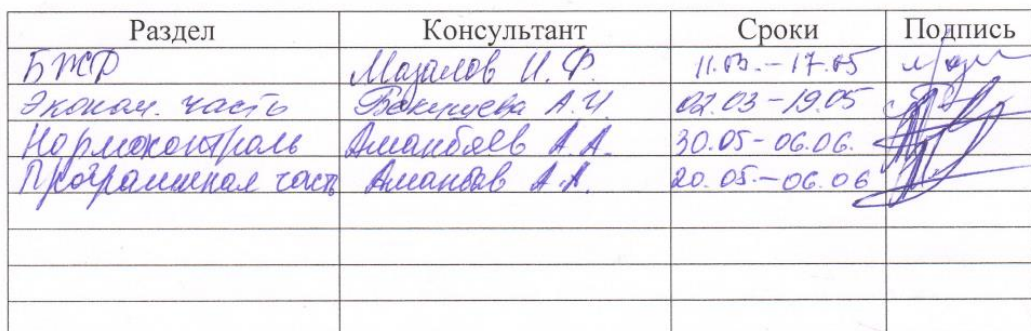 Раздел Консультант Сроки Подпись
БЖД Мазалов И.Ф. 11.03.-17.05
Эконом. часть А.И. 02.03-19.05
Нормоконтроль Аманбаев А.А. 30.05-06.06.
Программная часть Аманбаев А.А. 20.05-06.06